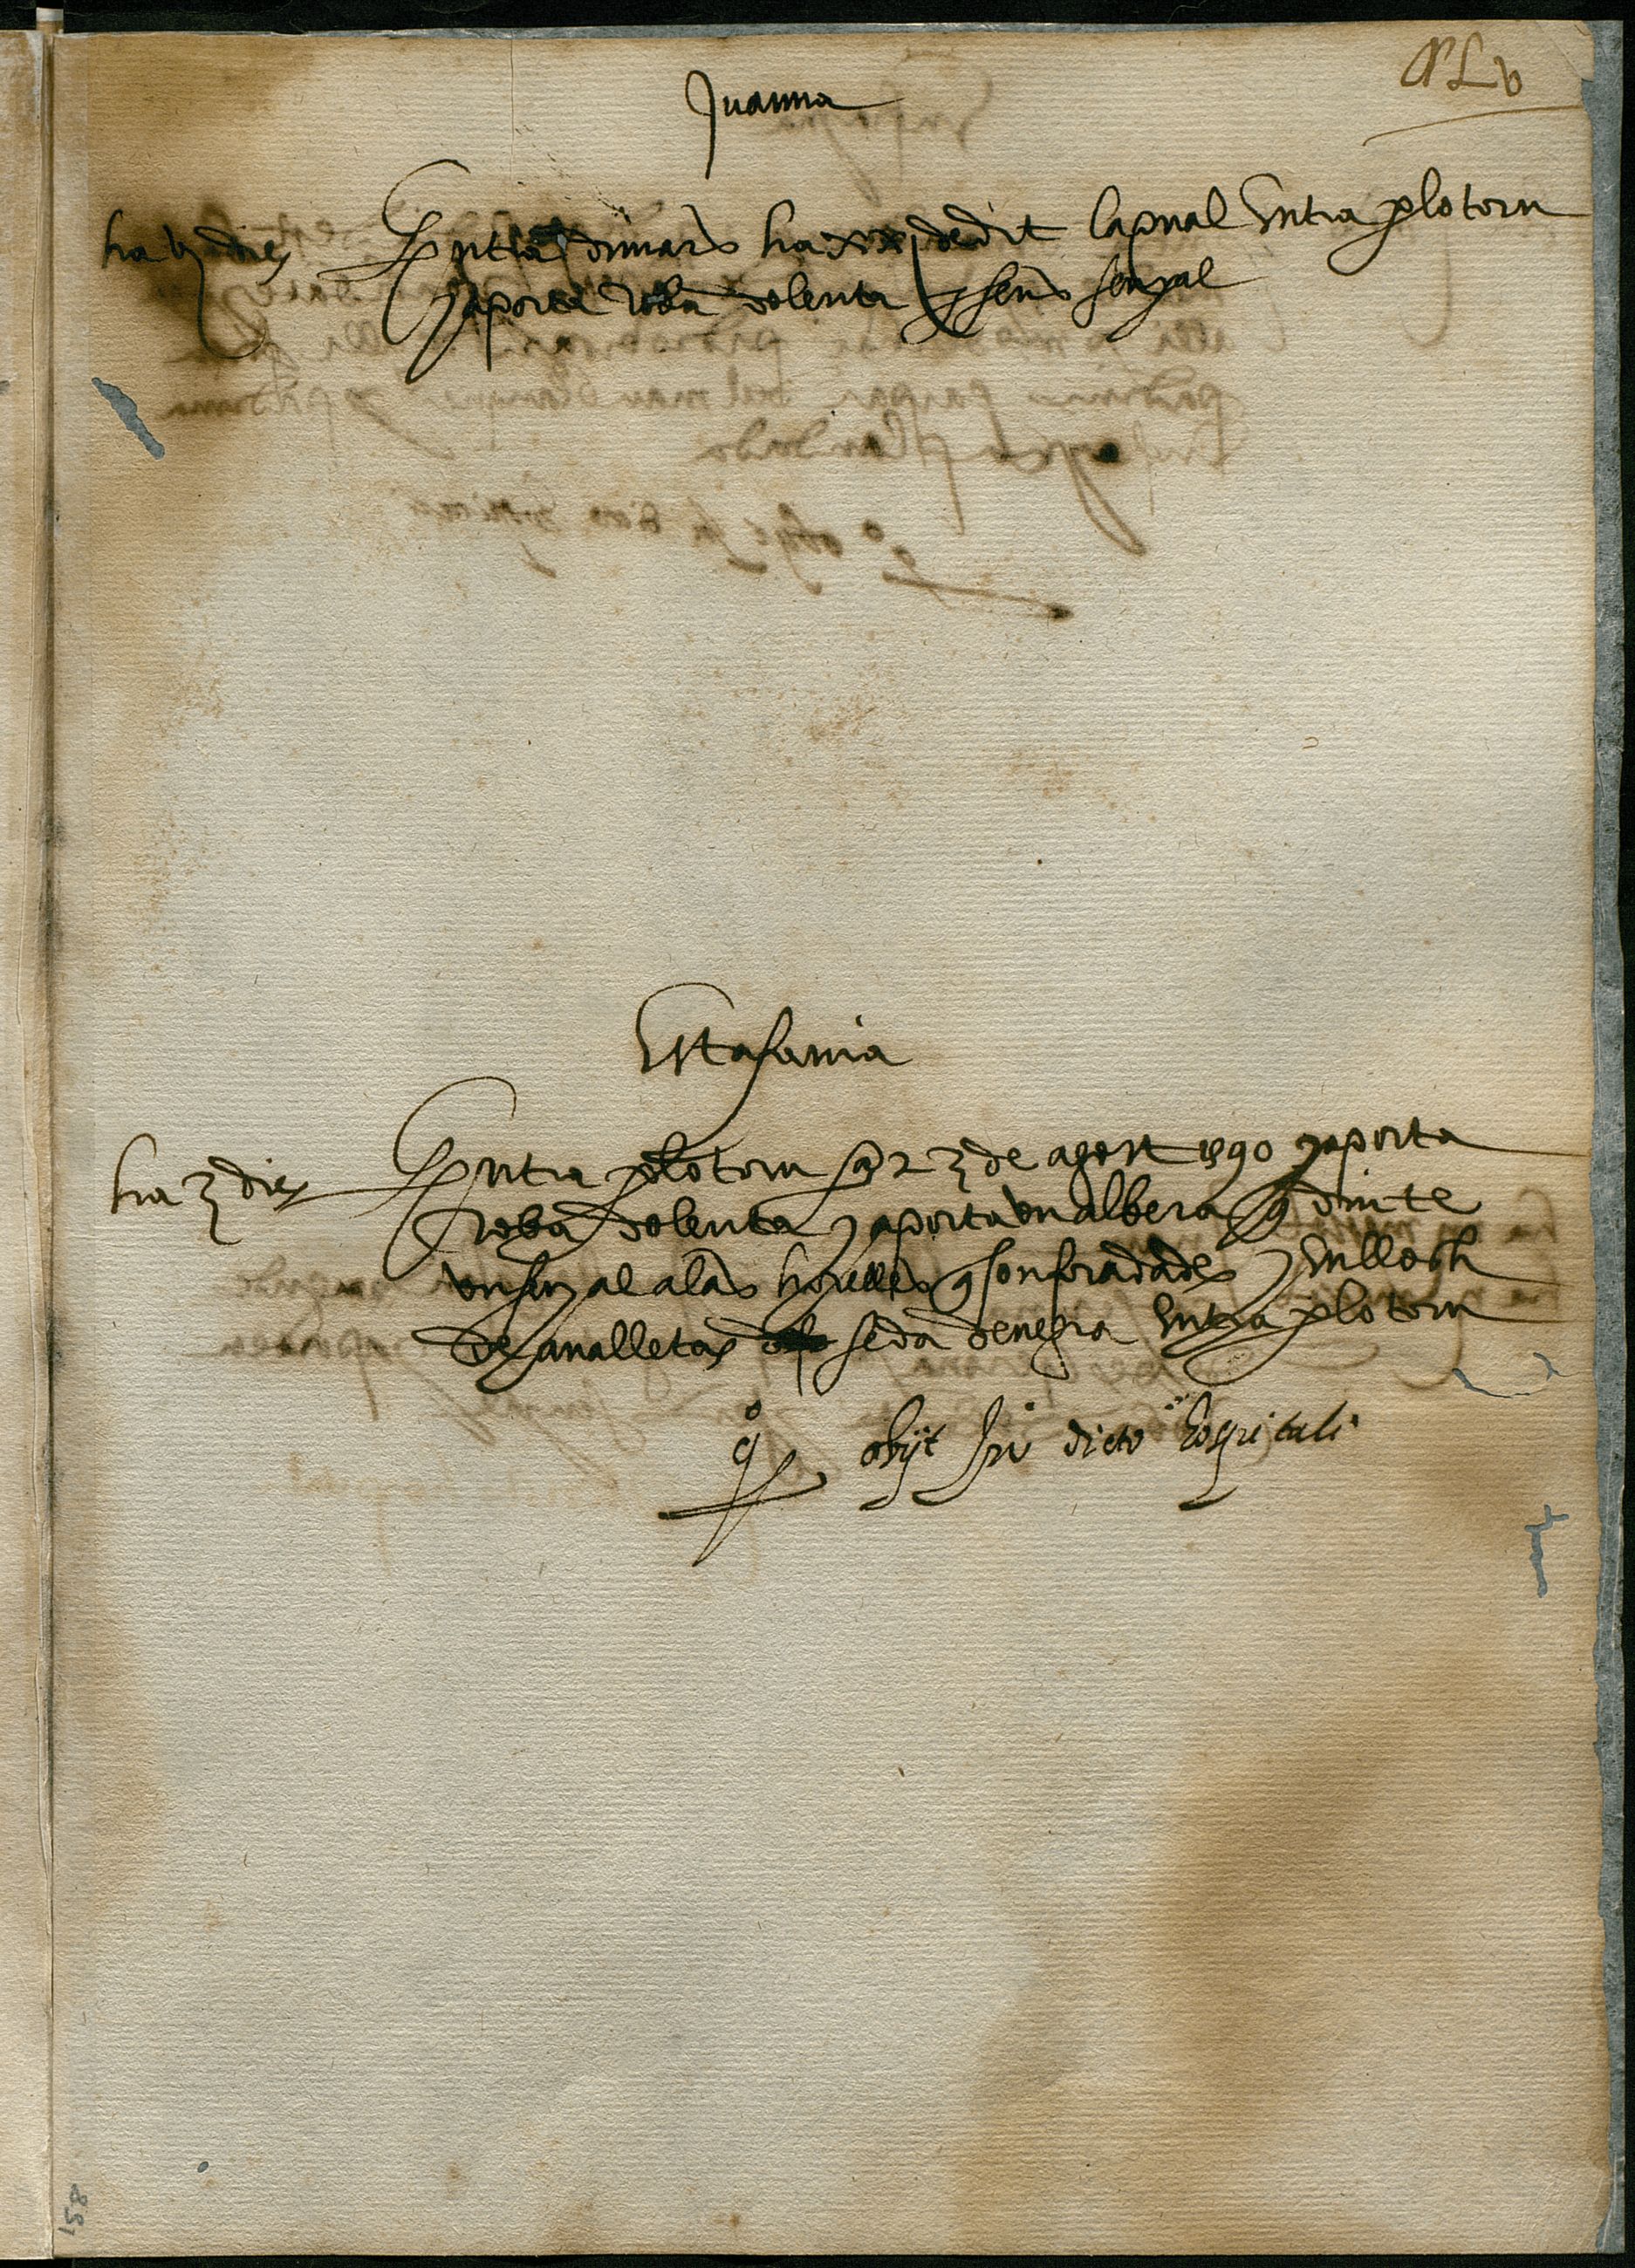 Juanna
ha 6 dies Entra dimars ha xxi dedit la qual entra p lo torn
y aporta roba dolenta y sens senyal
Estafania
ha 3 dies Entra p lo torn a 23 de agost 1590 y aporta
roba dolenta y aporta un albera q diu te
un senyal a las horelles q son foradades y un lloch
de analletas de seda de negra entra p lo torn
obijt in dicto hospitali
158